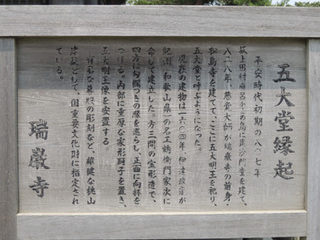 五大堂縁起
平安時代初期の八〇七年
坂上田村麻呂が 毘沙門堂を建て、
八二八年、慈覚大師が瑞巌寺の前身・
松島寺を建てて、ここに五大明王を祀り、
五大堂と呼ぶようになった。
現在の建物は一六〇四年、伊達政宗が
紀州(和歌山県)の名工鶴衛門家次に
命じて建立した一方三間の宝形造で、
四方に勾欄つきの縁を巡らし、正面に向拝を
つける。内部に重厚な家形厨子を置き、
五大明王像を安置する。
の彫刻など、雄健な桃山
建築として、国重要文化財に指定され
ている。
瑞巌寺